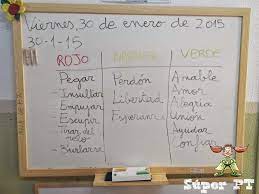 Viernes, 30 de enero de 2015
30-1-15
ROJO
VERDE
Pegar
- Insultar
Empujar
Escupir
Tirar del pelo
- Burlarse
Perdón
Libertad
Esperanza
Amable
Amor
Alegría
Unión
Ayudar
Confiar
Súper PT